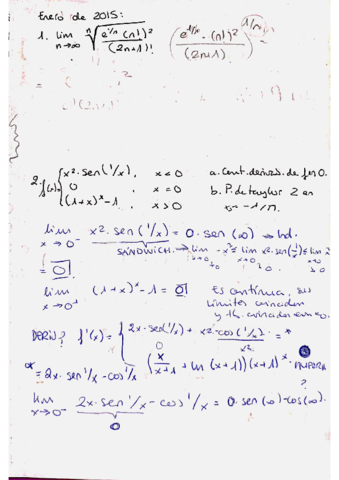 Enero de 2015:
1. lim n→∞ ⁿ√(e^(1/n)·(n!)²/(2n+1)!) (e^(1/n)·(n!)²/(2n+1))^(1/n)
2. f(x)= { x²·sen(1/x), x<0 a. Cont. deriv. de f en 0.
0, x=0 b. P. de taylor 2 en
(1+x)^x-1, x>0
lim x→0⁻ x²·sen(1/x) = 0·sen(∞) → Ind.
SANDWICH → lim x→0 -x² ≤ lim x→0 x²·sen(1/x) ≤ lim x→0
= 0
lim x→0⁺ (1+x)^x-1 = 0 Es continua, sus
límites coinciden
y th. coinciden en =0.
DERIV? f'(x) = { 2x·sen(1/x) + x²·cos(1/x)· /x² = *
0
* = 2x·sen 1/x - cos 1/x (x/(x+1) + ln(x+1))(x+1)^x.
?
lim x→0⁻ 2x·sen 1/x - cos 1/x = 0·sen(∞)-cos(∞).
0